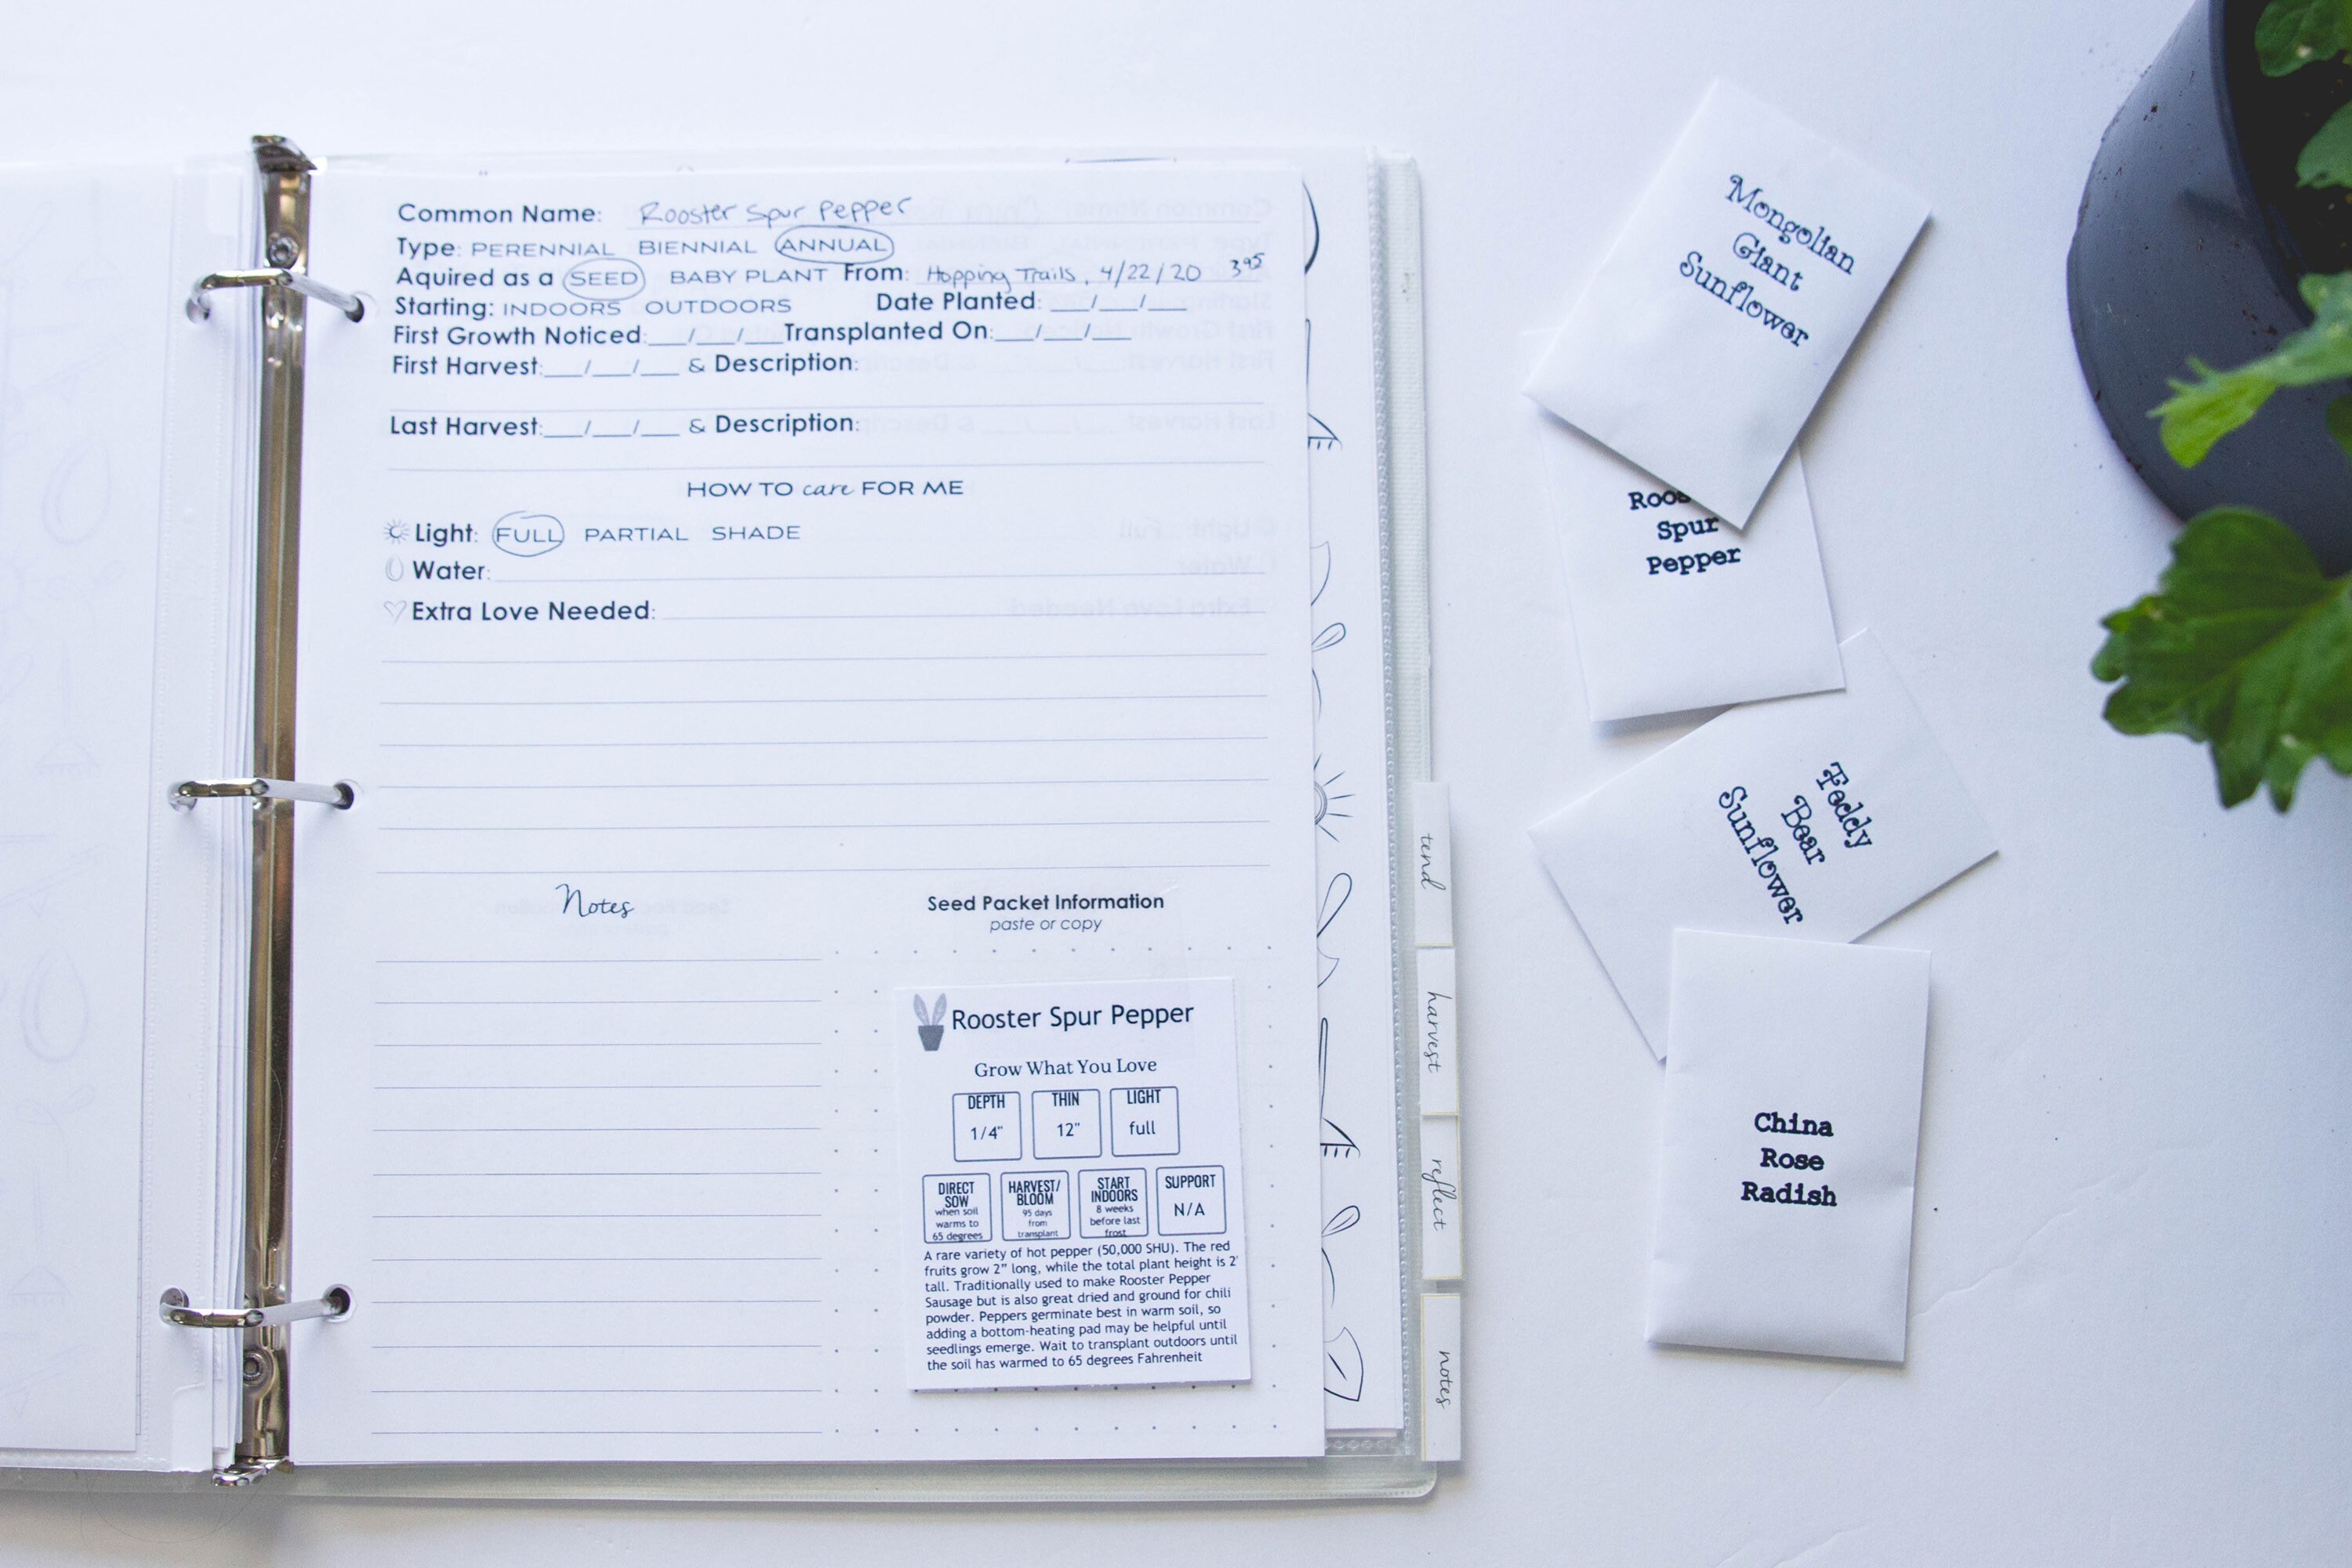 Common Name: Rooster Spur Pepper
Type: PERENNIAL BIENNIAL ANNUAL
Aquired as a SEED BABY PLANT From: Hopping Trails, 4/22/20 3.95
Starting: INDOORS OUTDOORS Date Planted: __/__/__
First Growth Noticed: __/__/__ Transplanted On: __/__/__
First Harvest: __/__/__ & Description:
Last Harvest: __/__/__ & Description:
HOW TO care FOR ME
Light: FULL PARTIAL SHADE
Water:
Extra Love Needed:
Notes
Seed Packet Information
paste or copy
Rooster Spur Pepper
Grow What You Love
DEPTH
1/4"
THIN
12"
LIGHT
full
DIRECT
SOW
when soil
warms to
65 degrees
HARVEST/
BLOOM
95 days
from
transplant
START
INDOORS
8 weeks
before last
frost
SUPPORT
N/A
A rare variety of hot pepper (50,000 SHU). The red
fruits grow 2" long, while the total plant height is 2'
tall. Traditionally used to make Rooster Pepper
Sausage but is also great dried and ground for chili
powder. Peppers germinate best in warm soil, so
adding a bottom-heating pad may be helpful until
seedlings emerge. Wait to transplant outdoors until
the soil has warmed to 65 degrees Fahrenheit
tend
harvest
reflect
notes
Mongolian
Giant
Sunflower
Spur
Pepper
Teddy
Bear
Sunflower
China
Rose
Radish